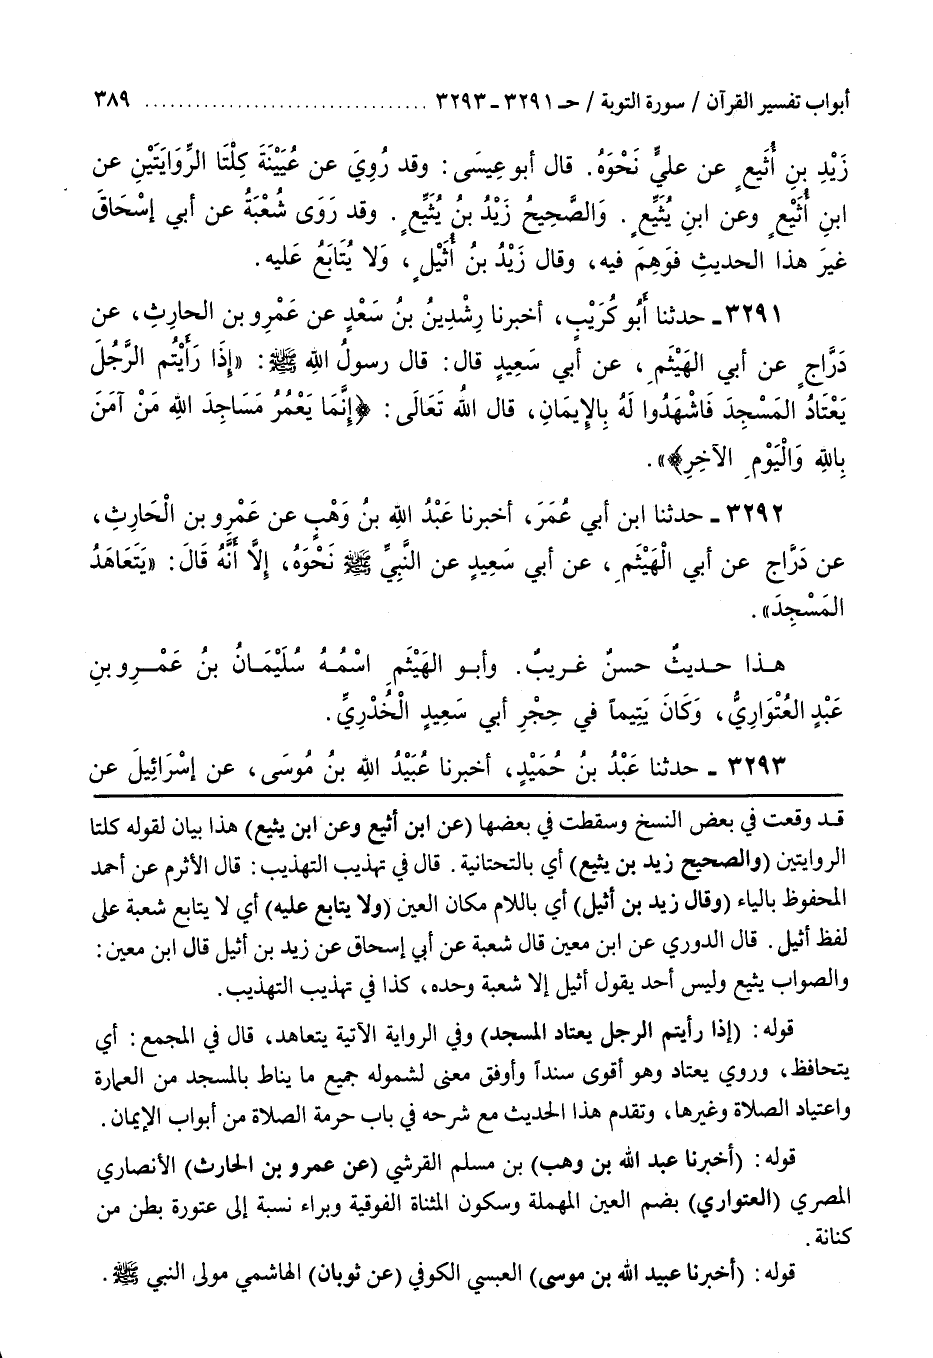 أبواب تفسير القرآن / سورة التوبة / حـ ٣٢٩١ - ٣٢٩٣ ................................. ٣٨٩
زَيْدِ بنِ أُثَيع عن عليٍّ نَحْوَهُ. قال أبو عِيسَى: وقد رُوِيَ عن عُيَيْنَةَ كِلْتَا الرِّوَايَتَيْنِ عن
ابنِ أُثَيْعٍ وعن ابنِ يُثَيِّعٍ. وَالصَّحِيحُ زَيْدُ بنُ يُثَيِّعٍ. وقد رَوَى شُعْبَةُ عن أبي إسْحَاقَ
غيرَ هذا الحديثِ فوَهِمَ فيه، وقال زَيْدُ بنُ أُثَيْلٍ، وَلا يُتَابَعُ عَليه.
٣٢٩١ ـ حدثنا أَبُو كُرَيْبٍ، أخبرنا رِشْدِينُ بنُ سَعْدٍ عن عَمْرِو بن الحارِثِ، عن
دَرَّاجٍ عن أبي الهَيْثَمِ، عن أبي سَعِيدٍ قال: قال رسولُ الله ﷺ: «إِذَا رَأَيْتُم الرَّجُلَ
يَعْتَادُ المَسْجِدَ فَاشْهَدُوا لَهُ بِالإِيمَانِ، قال اللهُ تَعَالَى: ﴿إِنَّمَا يَعْمُرُ مَسَاجِدَ اللهِ مَنْ آمَنَ
بِاللهِ وَالْيَوْمِ الآخِرِ﴾».
٣٢٩٢ ـ حدثنا ابن أبي عُمَرَ، أخبرنا عَبْدُ الله بنُ وَهْبٍ عن عَمْرِو بن الْحَارِثِ،
عن دَرَّاجٍ عن أبي الْهَيْثَمِ، عن أبي سَعِيدٍ عن النَّبِيِّ ﷺ نَحْوَهُ، إِلَّا أَنَّهُ قَالَ: «يَتَعَاهَدُ
المَسْجِدَ».
هـذا حديثٌ حسنٌ غريبٌ. وأبو الهَيْثَمِ اسْمُهُ سُلَيْمَانُ بنُ عَمْرِو بنِ
عَبْدٍ العُتْوَارِيُّ، وَكَانَ يَتِيماً في حِجْرِ أبي سَعِيدٍ الْخُدْرِيِّ.
٣٢٩٣ ـ حدثنا عَبْدُ بنُ حُمَيْدٍ، أخبرنا عُبَيْدُ اللهِ بنُ مُوسَى، عن إسْرَائِيلَ عن
قد وقعت في بعض النسخ وسقطت في بعضها (عن ابن أثيع وعن ابن يثيع) هذا بيان لقوله كلتا
الروايتين (والصحيح زيد بن يثيع) أي بالتحتانية. قال في تهذيب التهذيب: قال الأثرم عن أحمد
المحفوظ بالياء (وقال زيد بن أثيل) أي باللام مكان العين (ولا يتابع عليه) أي لا يتابع شعبة على
لفظ أثيل. قال الدوري عن ابن معين قال شعبة عن أبي إسحاق عن زيد بن أثيل قال ابن معين:
والصواب يثيع وليس أحد يقول أثيل إلا شعبة وحده، كذا في تهذيب التهذيب.
قوله: (إذا رأيتم الرجل يعتاد المسجد) وفي الرواية الآتية يتعاهد، قال في المجمع: أي
يتحافظ، وروي يعتاد وهو أقوى سنداً وأوفق معنى لشموله جميع ما يناط بالمسجد من العمارة
واعتياد الصلاة وغيرها، وتقدم هذا الحديث مع شرحه في باب حرمة الصلاة من أبواب الإيمان.
قوله: (أخبرنا عبد الله بن وهب) بن مسلم القرشي (عن عمرو بن الحارث) الأنصاري
المصري (العتواري) بضم العين المهملة وسكون المثناة الفوقية وبراء نسبة إلى عتورة بطن من
كنانة.
قوله: (أخبرنا عبيد الله بن موسى) العبسي الكوفي (عن ثوبان) الهاشمي مولى النبي ﷺ.